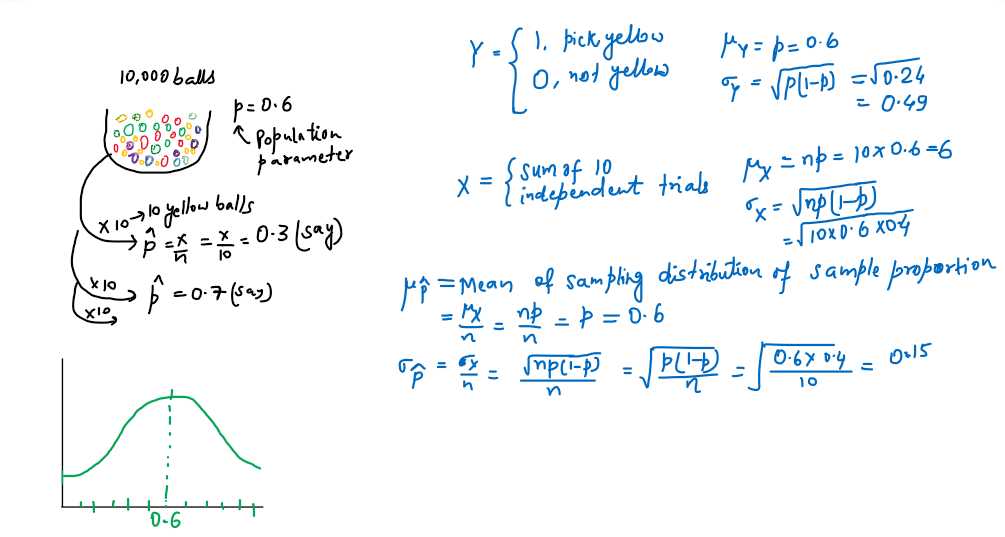 10,000 balls
p = 0.6
Population
parameter
×10 → 10 yellow balls
p̂ = x/n = x/10 = 0.3 (say)
×10
p̂ = 0.7 (say)
×10
0.6
Y = { 1, pick yellow
0, not yellow
μ_Y = p = 0.6
σ_Y = √p(1-p) = √0.24
= 0.49
X = { sum of 10
independent trials
μ_X = np = 10 × 0.6 = 6
σ_X = √np(1-p)
= √10×0.6×0.4
μ_p̂ = Mean of sampling distribution of sample proportion
= μ_X/n = np/n = p = 0.6
σ_p̂ = σ_X/n = √np(1-p)/n = √(p(1-p)/n) = √(0.6×0.4/10) = 0.15